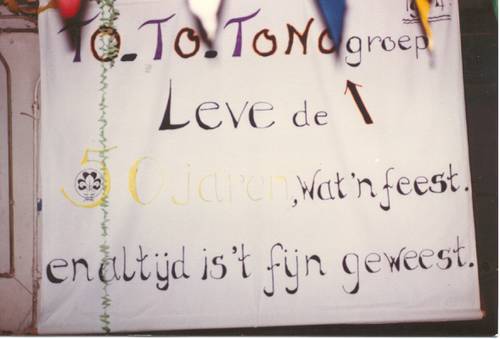 To-To-Tono groep
Leve de
50 jaren, wat 'n feest.
en altijd is 't fijn geweest.